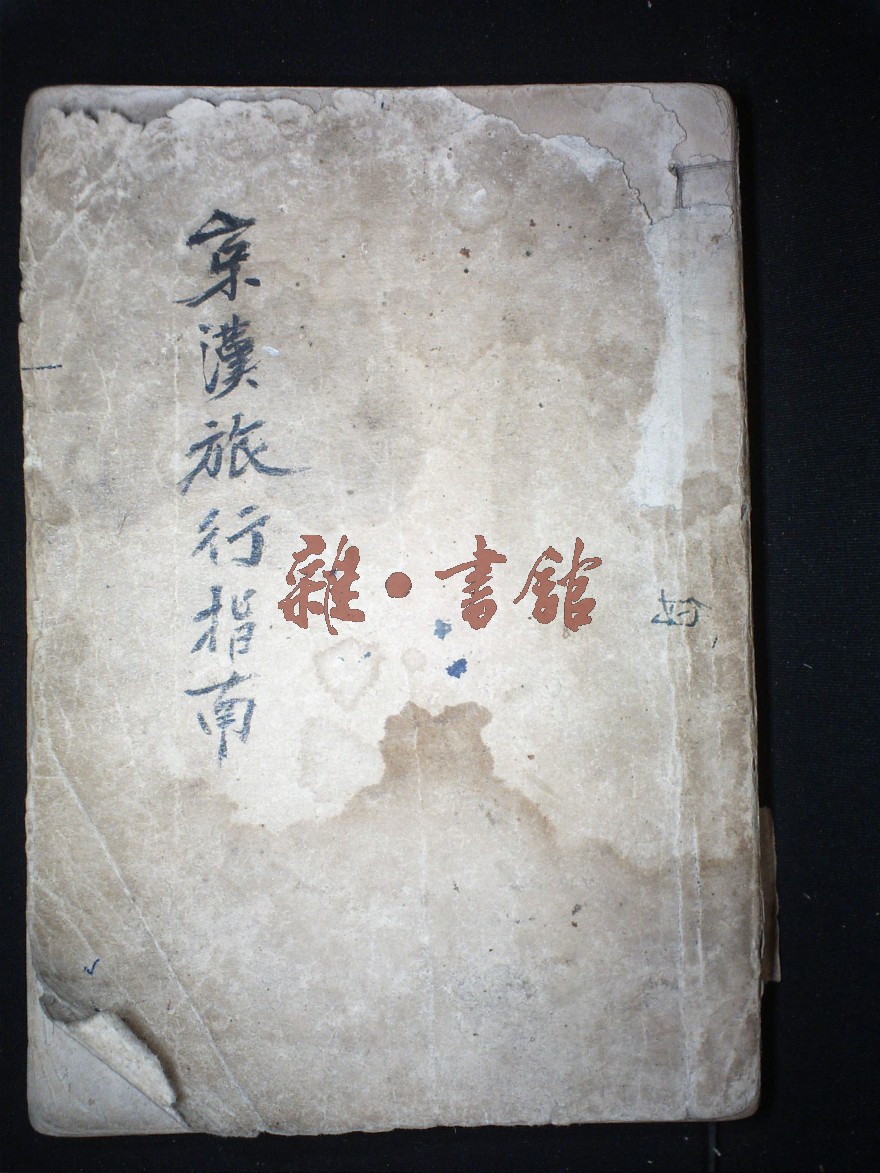 京漢旅行指南
雜·書館